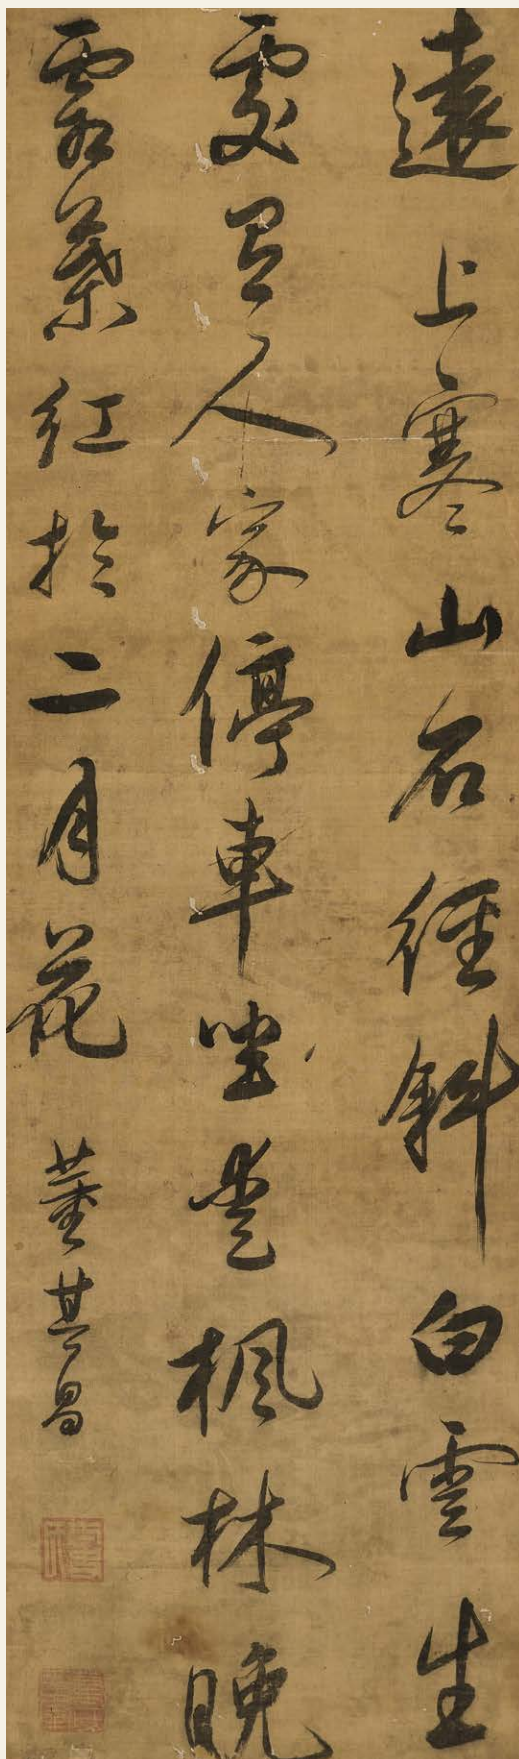 遠上寒山石徑斜白雲生
處有人家停車坐愛楓林晚
霜葉紅於二月花 董其昌